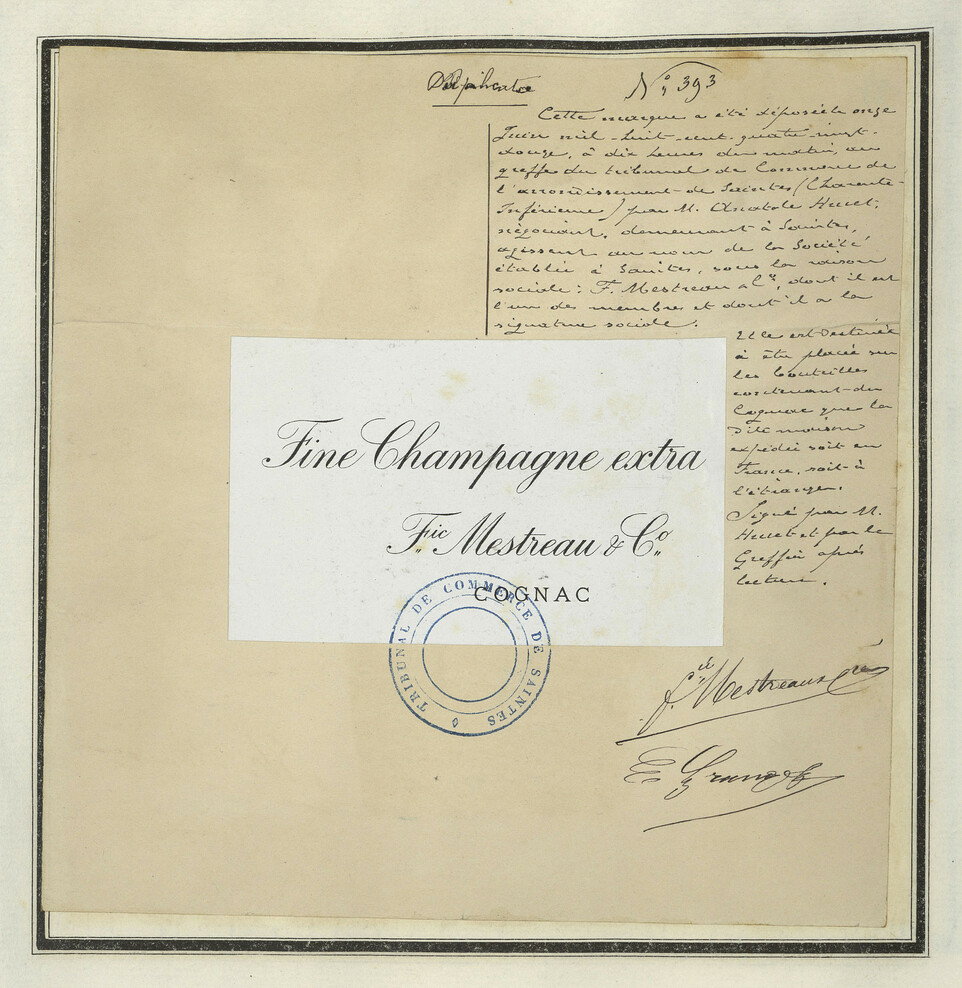 Duplicata
N° 393
Cette marque a été déposée le onze
Juin mil-huit-cent-quatre-vingt-
douze, à dix heures du matin, au
greffe du tribunal de Commerce de
l'arrondissement de Saintes (Charente-
Inférieure) par M. Anatole Huet,
négociant, demeurant à Saintes,
agissant au nom de la Société
établie à Saintes, sous la raison
sociale: F. Mestreau & Cie, dont il est
l'un des membres et dont il a la
signature sociale.
Elle est destinée
à être placée sur
les bouteilles
contenant du
Cognac que la
dite maison
expédie soit en
France, soit à
l'étranger.
Signé par M.
Huet et par le
Greffier après
lecture.
Fine Champagne extra
Fic Mestreau & Co
COGNAC
TRIBUNAL DE COMMERCE DE SAINTES
f. Mestreau & Cie